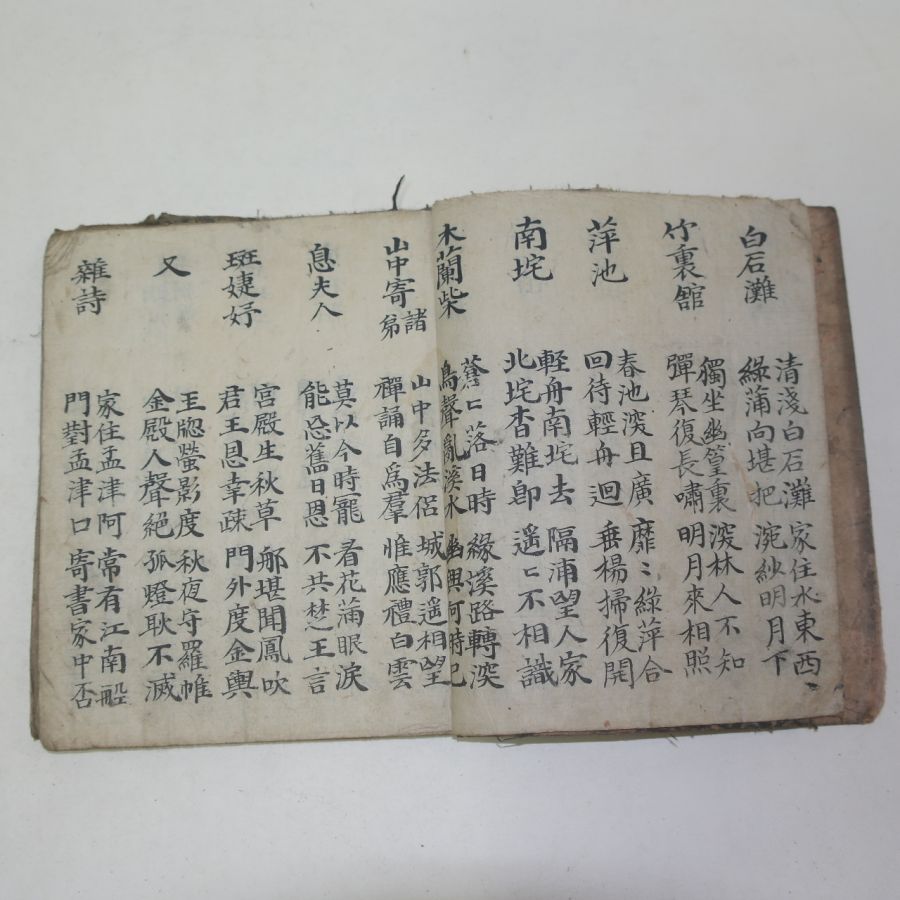 白石灘
清淺白石灘
綠蒲向堪把
家住水東西
浣紗明月下
竹裏館
獨坐幽篁裏
彈琴復長嘯
深林人不知
明月來相照
萍池
春池深且廣
回待輕舟迴
靡〻綠萍合
垂楊掃復開
南垞
軽舟南垞去
北垞杳難即
隔浦望人家
遥〻不相識
木蘭柴
蒼〻落日時
鳥聲亂溪水
緣溪路轉深
幽興何時已
山中寄諸弟
山中多法侶
禪誦自爲羣
城郭遥相望
惟應禮白雲
息夫人
莫以今時寵
能忘舊日恩
看花滿眼淚
不共楚王言
班婕妤
宮殿生秋草
君王恩幸疎
那堪聞鳳吹
門外度金輿
又
玉牕螢影度
金殿人聲絕
秋夜守羅帷
孤燈耿不滅
雜詩
家住孟津阿
門對孟津口
常有江南船
寄書家中否